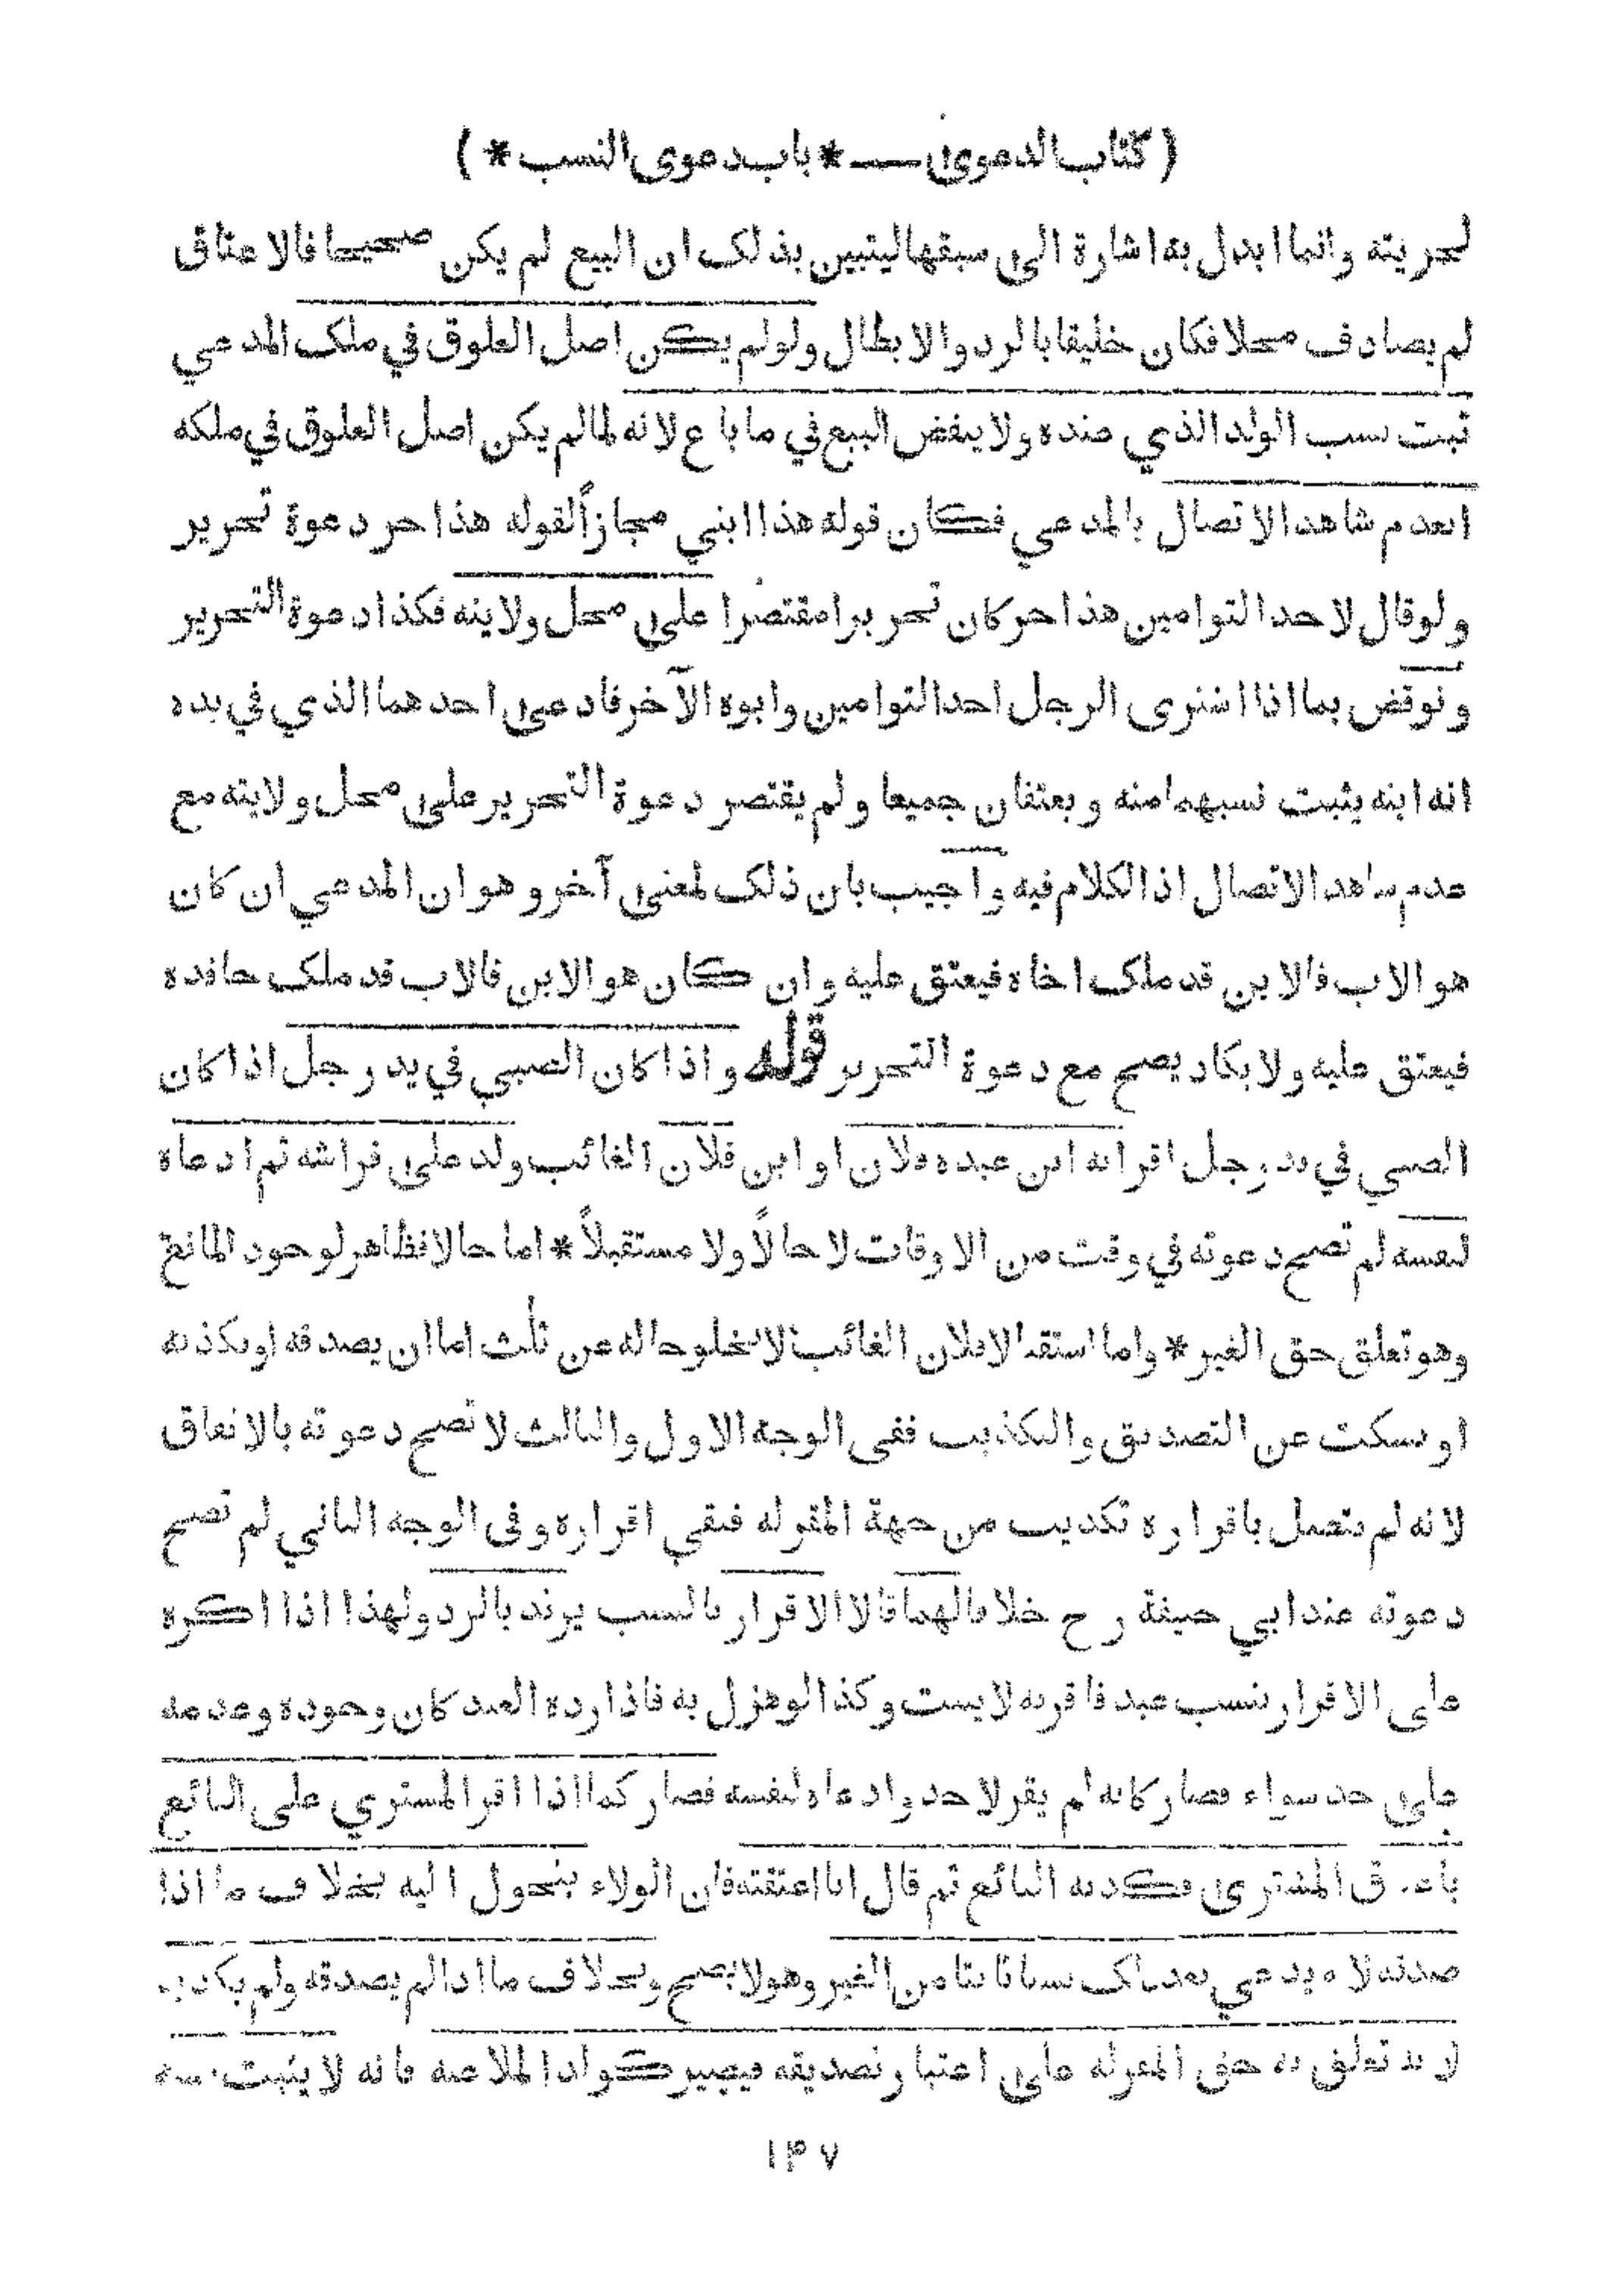 ( كتاب الدعوى — * باب دعوى النسب * )
لحريته وانما ابدل به اشارة الى سبقها ليتبين بذلك ان البيع لم يكن صحيحا فالاعتاق
لم يصادف محلا فكان خليقا بالرد والابطال ولو لم يكن اصل العلوق في ملك المدعي
ثبت نسب الولد الذي عنده ولا ينقض البيع في ما باع لانه لما لم يكن اصل العلوق في ملكه
انعدم شاهد الاتصال بالمدعي فكان قوله هذا ابني مجازاً لقوله هذا حر دعوة تحرير
ولو قال لاحد التوامين هذا حر كان تحريرا مقتصرا على محل ولايته فكذا دعوة التحرير
ونوقض بما اذا اشترى الرجل احد التوامين وابوه الآخر فادعى احدهما الذي في يده
انه ابنه يثبت نسبهما منه ويعتقان جميعا ولم يقتصر دعوة التحرير على محل ولايته مع
عدم شاهد الاتصال اذ الكلام فيه واجيب بان ذلك لمعنى آخر وهو ان المدعي ان كان
هو الاب فالابن قد ملك اخاه فيعتق عليه وان كان هو الابن فالاب قد ملك حافده
فيعتق عليه ولا يكاد يصح مع دعوة التحرير قوله واذا كان الصبي في يد رجل اذا كان
الصبي في يد رجل اقر انه ابن عبده فلان او ابن فلان الغائب ولد على فراشه ثم ادعاه
لنفسه لم تصح دعوته في وقت من الاوقات لا حالاً ولا مستقبلاً * اما حالا فظاهر لوجود المانع
وهو تعلق حق الغير * واما استقبالا فلان الغائب لا تخلو حاله عن ثلث اما ان يصدقه او يكذبه
او يسكت عن التصديق والتكذيب ففي الوجه الاول والثالث لا تصح دعوته بالاتفاق
لانه لم يتصل باقراره تكذيب من جهة المقرله فبقي اقراره وفي الوجه الثاني لم تصح
دعوته عند ابي حنيفة رح خلافا لهما قالا الاقرار بالنسب يرتد بالرد ولهذا اذا اكره
على الاقرار بنسب عبد فاقر به لا يثبت وكذا لو هزل به فاذا رده العبد كان وجوده وعدمه
على حد سواء فصار كانه لم يقر لاحد وادعاه لنفسه فصار كما اذا اقر المشتري على البائع
المشترى فكذبه البائع ثم قال انا اعتقته فان الولاء يتحول اليه بخلاف ما اذا
صدقه لانه يدعي بعد ذلك نسبا ثابتا من الغير وهو لا يصح وبخلاف ما اذا لم يصدقه ولم يكذبه
تعلق به حق المقرله على اعتبار تصديقه فيصير كولد الملاعنة فانه لا يثبت نسبه
١٤٧